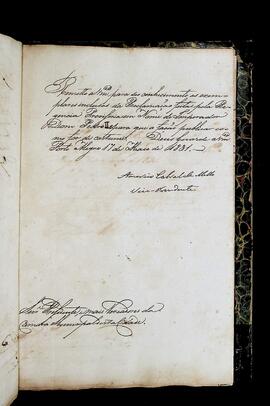 Remetto a Vmces para seu conhecimento os exem-
plares inclusos da Proclamação feita pela Re-
gencia Provisoria em Nome do Imperador
Dom Pedro II para que a façaõ publica co-
mo for de costume. Deos Guarde a Vmces
Porto Alegre 17 de Maio de 1831.
Americo Cabral de Mello
Vice-Presidente
Snrs Presidente, e mais Vereadores da
Camara Municipal desta Cidade.